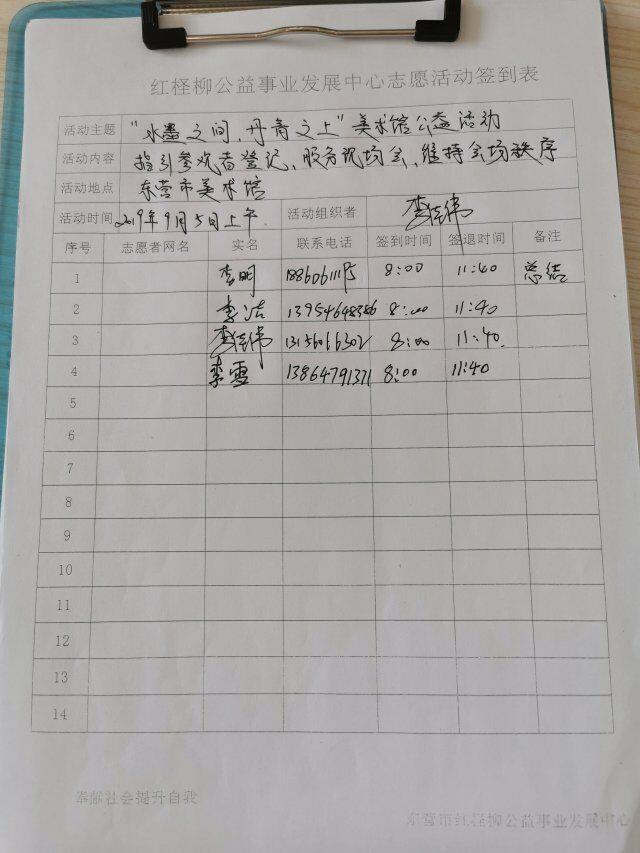 红柽柳公益事业发展中心志愿活动签到表
活动主题 "水墨之间,丹青之上"美术馆公益活动
活动内容 指引参观者登记、服务现场会、维持会场秩序
活动地点 东营市美术馆
活动时间 2019年9月5日上午 活动组织者
序号 志愿者网名 实名 联系电话 签到时间 签退时间 备注
1 李明 8:00 11:40 总结
2 李洁 13954648386 8:00 11:40
3 13156066302 8:00 11:40
4 李雪 13864791371 8:00 11:40
5
6
7
8
9
10
11
12
13
14
奉献社会提升自我
东营市红柽柳公益事业发展中心